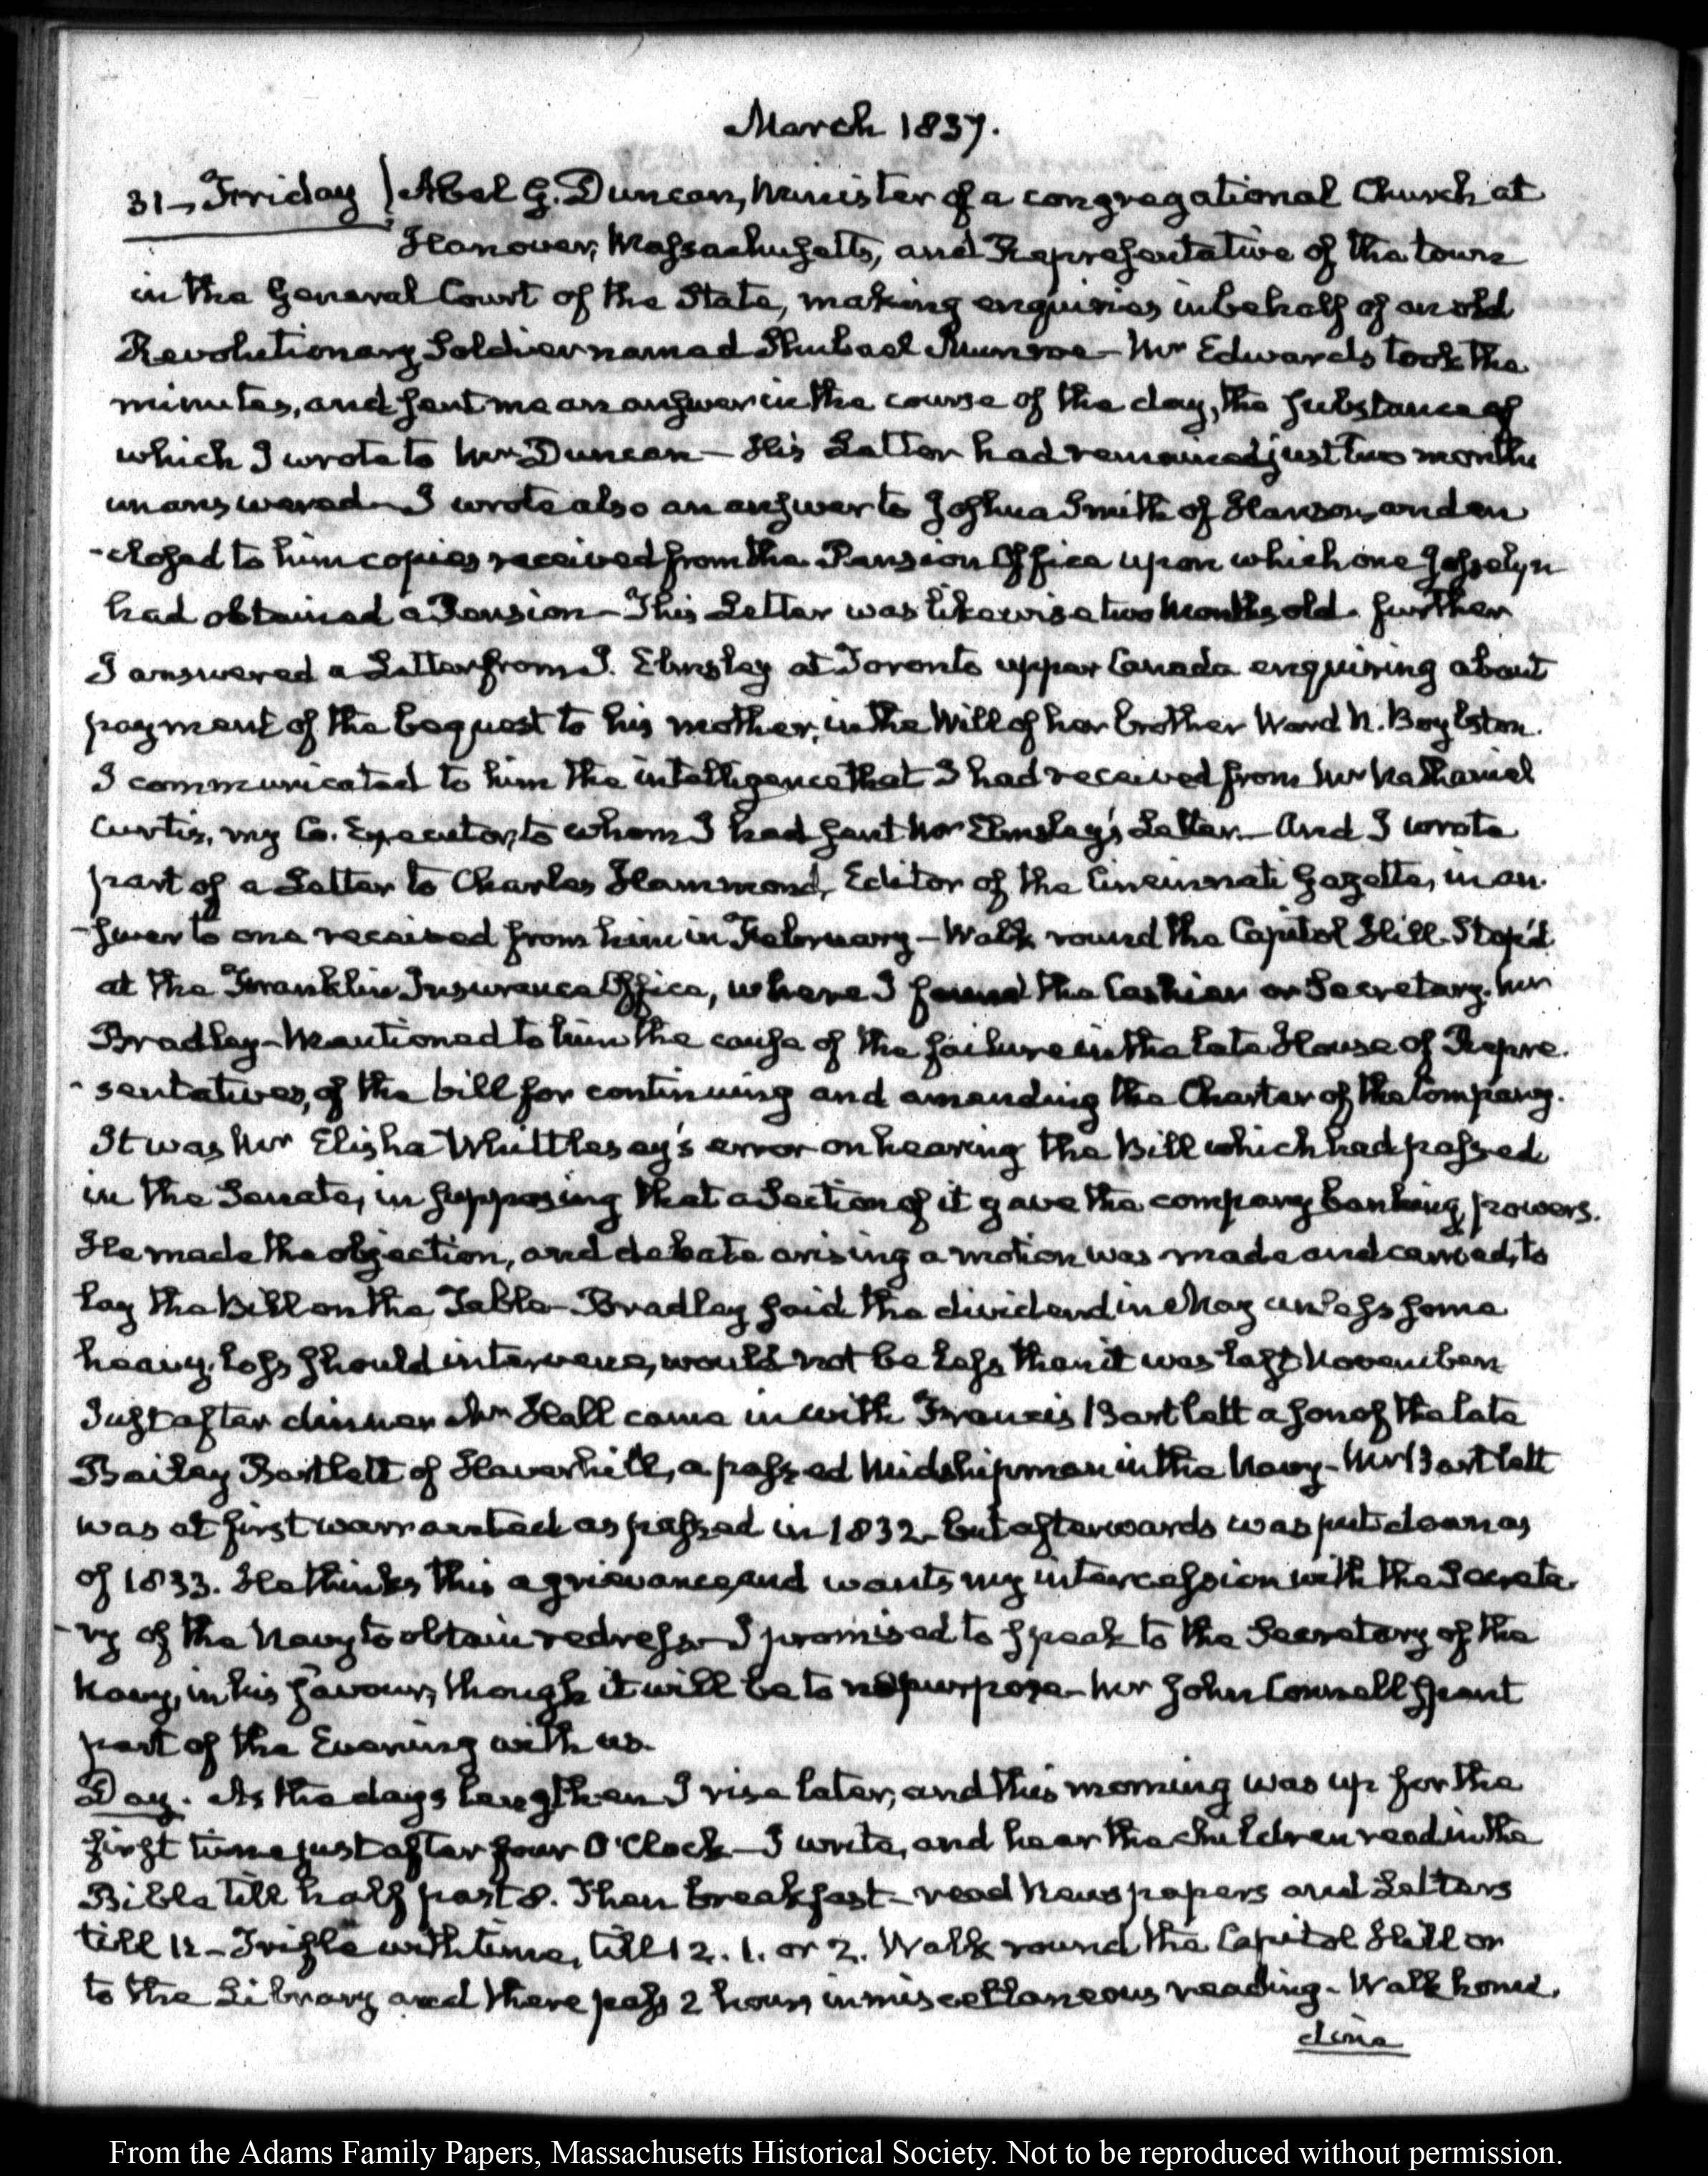 March 1837.
31. Friday } Abel G. Duncan, Minister of a congregational Church at
Hanover, Massachusetts, and Representative of the town
in the General Court of the State, making enquiries in behalf of an old
Revolutionary Soldier named Shubael Munroe – Mr Edwards took the
minutes, and sent me an answer in the course of the day, the substance of
which I wrote to Mr Duncan – His Letter had remained just two months
unanswered – I wrote also an answer to Joshua Smith of Hanson, and en
-closed to him copies received from the Pension Office upon which one Josselyn
had obtained a Pension – This Letter was likewise two Months old. further
I answered a Letter from J. Elmsley at Toronto upper Canada enquiring about
payment of the bequest to his mother, in the Will of her brother Ward N. Boylston.
I communicated to him the intelligence that I had received from Mr Nathaniel
Curtis, my Co. Executor, to whom I had sent Mr Elmsley's Letter – And I wrote
part of a Letter to Charles Hammond, Editor of the Cincinnati Gazette, in an
-swer to one received from him in February – Walk round the Capitol Hill. Stop'd
at the Franklin Insurance Office, where I found the Cashier or Secretary. Mr
Bradley – Mentioned to him the cause of the failure in the late House of Repre
-sentatives, of the bill for continuing and amending the Charter of the Company.
It was Mr Elisha Whittlesey's error on hearing the Bill which had passed
in the Senate, in supposing that a Section of it gave the company banking powers.
He made the objection, and debate arising a motion was made and carried, to
lay the Bill on the Table – Bradley said the dividend in May unless some
heavy loss should intervene, would not be less than it was last November
Just after dinner Mr Hall came in with Francis Bartlett a son of the late
Bailey Bartlett of Haverhill, a passed Midshipman in the Navy – Mr Bartlett
was at first warranted as passed in 1832 – but afterwards was put down as
of 1833. He thinks this a grievance, and wants my intercession with the Secreta
-ry of the Navy to obtain redress – I promised to speak to the Secretary of the
Navy, in his favour, though it will be to no purpose – Mr John Connell spent
part of the Evening with us.
Day. As the days lengthen I rise later, and this morning was up for the
first time just after four O'Clock – I write, and hear the children read in the
Bible till half past 8. Then breakfast – read Newspapers and Letters
till 11 – Trifle with time, till 12. 1. or 2. Walk round the Capitol Hill or
to the Library and there pass 2 hours in miscellaneous reading – Walk home.
dine
From the Adams Family Papers, Massachusetts Historical Society. Not to be reproduced without permission.